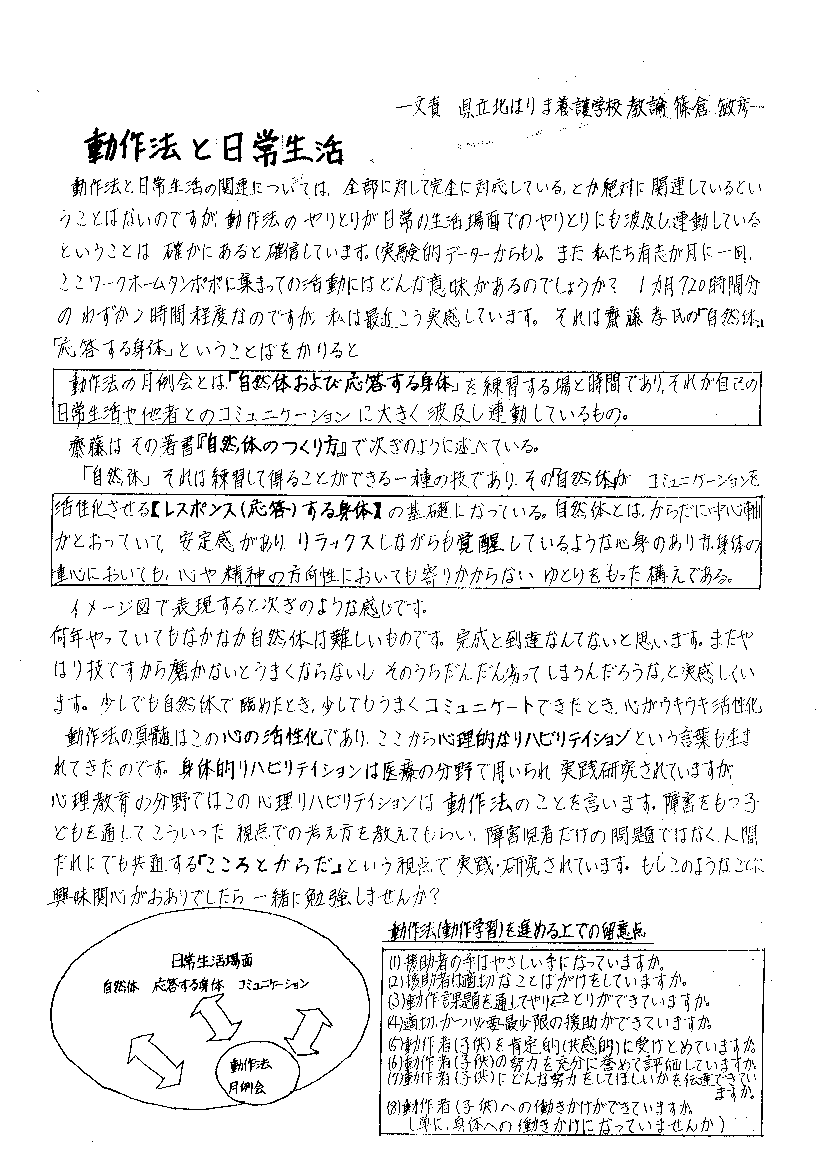 ―文責 県立北はりま養護学校 教諭 篠倉 敏彦―
動作法と日常生活
動作法と日常生活の関連については、全部に対して完全に対応している、とか絶対に関連しているとい
うことはないのですが、動作法のやりとりが日常の生活場面でのやりとりにも波及し、連動している
ということは確かにあると確信しています。(実験的データーからも)。また私たち有志が月に一回、
ここワークホームタンポポに集まっての活動にはどんな意味があるのでしょうか? 1カ月720時間分
のわずか2時間程度なのですが、私は最近こう実感しています。それは齋藤孝氏の『自然体』
「応答する身体」ということばをかりると
動作法の月例会とは、「自然体および応答する身体」を練習する場と時間であり、それが自己の
日常生活や他者とのコミュニケーションに大きく波及し連動しているもの。
齋藤はその著書『自然体のつくり方』で次ぎのように述べている。
「自然体」それは練習して得ることができる一種の技であり、その『自然体』が コミュニケーションを
活性化させる【レスポンス(応答)する身体】の基礎になっている。自然体とは、からだに中心軸
がとおっていて、安定感があり、リラックスしながらも覚醒しているような心身のあり方、身体の
重心においても、心や精神の方向性においても寄りかからないゆとりをもった構えである。
イメージ図で表現すると次ぎのような感じです。
何年やっていてもなかなか自然体は難しいものです。完成と到達なんてないと思います。またや
はり技ですから磨かないとうまくならないし そのうちだんだん劣ってしまうんだろうな、と実感してい
ます。少しでも自然体で臨めたとき、少しでもうまくコミュニケートできたとき、心がウキウキ活性化
動作法の真髄はこの心の活性化であり、ここから心理的なリハビリテイションという言葉も生ま
れてきたのです。身体的リハビリテイションは医療の分野で用いられ 実践研究されていますが、
心理教育の分野ではこの心理リハビリテイションは動作法のことを言います。障害をもつ子
どもを通してこういった視点での考え方を教えてもらい、障害児者だけの問題ではなく、人間
だれにでも共通する『こころとからだ』という視点で実践・研究されています。もしこのようなことに
興味関心がおありでしたら一緒に勉強しませんか?
日常生活場面
自然体 応答する身体 コミュニケーション
動作法
月例会
動作法(動作学習)を進める上での留意点
(1)援助者の手はやさしい手になっていますか。
(2)援助者は適切なことばがけをしていますか。
(3)動作課題を通してやりとりができていますか。
(4)適切、かつ必要最少限の援助ができていますか。
(5)動作者(子供)を肯定的(共感的)に受けとめていますか。
(6)動作者(子供)の努力を充分に誉めて評価していますか。
(7)動作者(子供)にどんな努力をしてほしいかを伝達できてい
ますか。
(8)動作者(子供)への働きかけができていますか。
(単に、身体への働きかけになっていませんか)